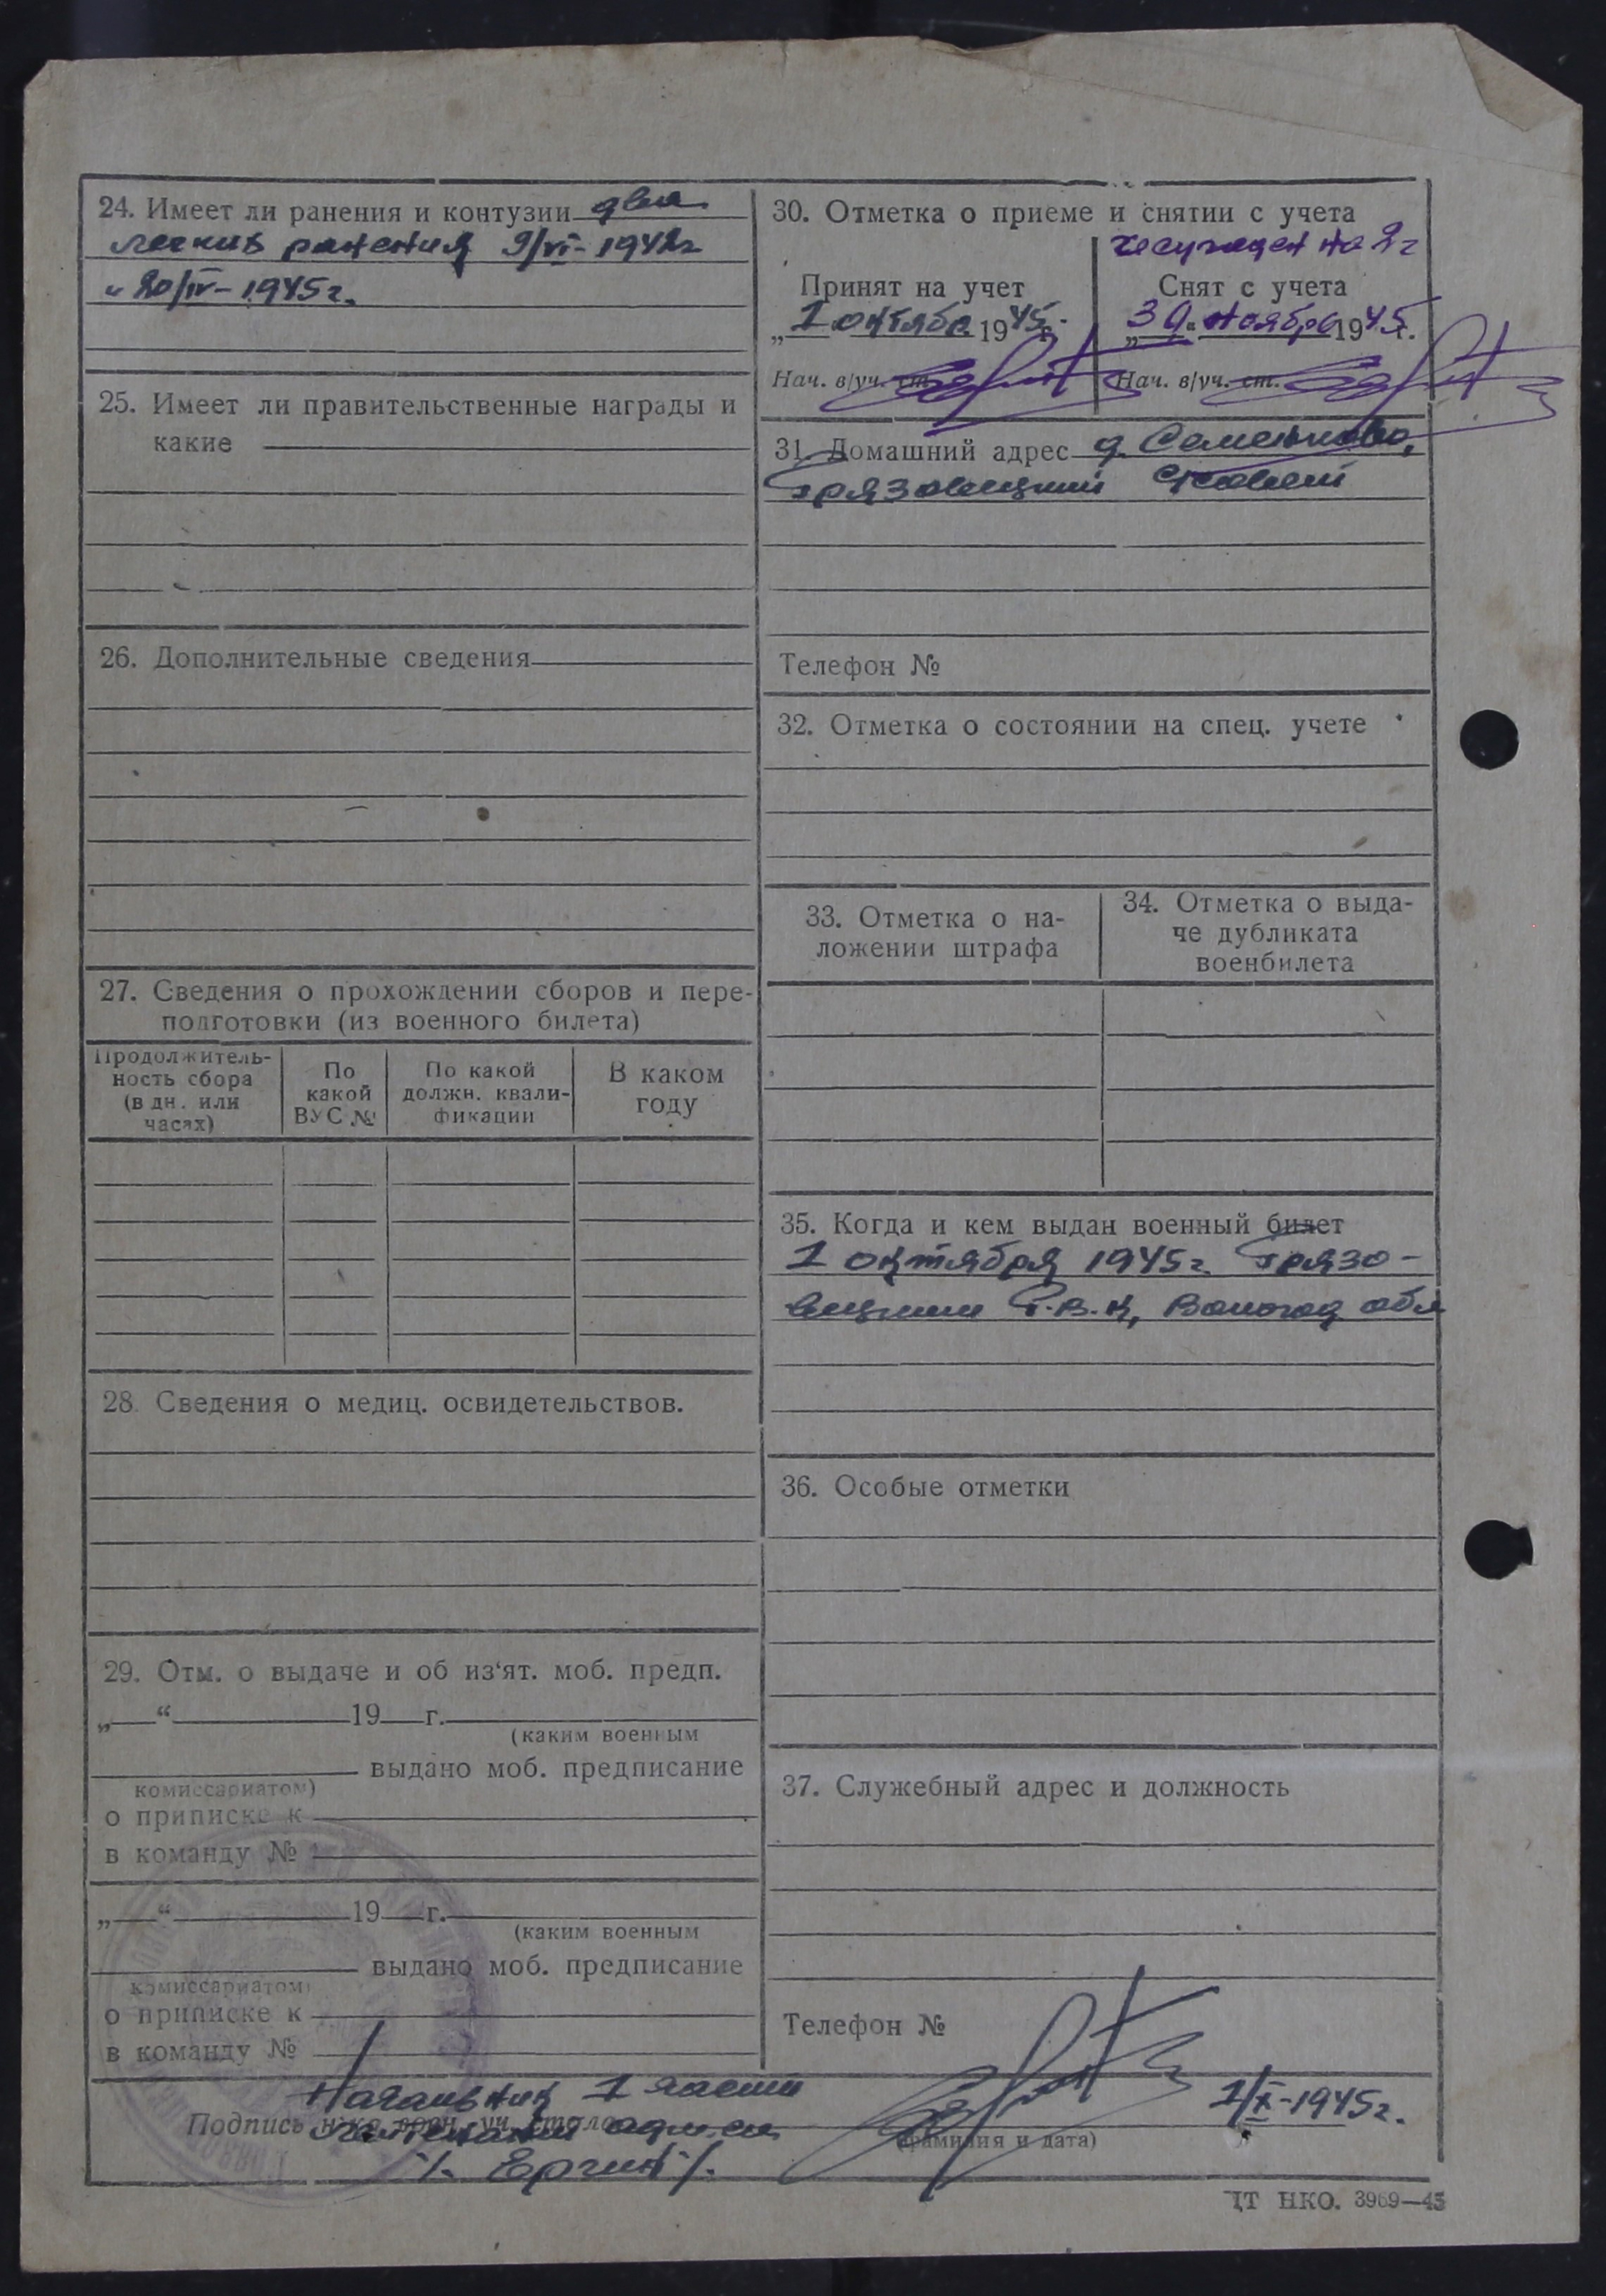 24. Имеет ли ранения и контузии два
легких ранения 9/VI-1942г
и 20/IV-1945г.
25. Имеет ли правительственные награды и
какие
26. Дополнительные сведения
27. Сведения о прохождении сборов и пере-
подготовки (из военного билета)
Продолжитель-
ность сбора
(в дн. или
часах)
По
какой
ВУС №
По какой
должн. квали-
фикации
В каком
году
28. Сведения о медиц. освидетельствов.
29. Отм. о выдаче и об из‘ят. моб. предп.
„ “ 19 г.
(каким военным
выдано моб. предписание
комиссариатом)
о приписке к
в команду №
„ “ 19 г.
(каким военным
выдано моб. предписание
комиссариатом)
о приписке к
в команду №
30. Отметка о приеме и снятии с учета
на 2 г
Принят на учет
„1 октября 1945г.
Нач. в/уч. ст.
Снят с учета
„30“ ноября 1945г.
Нач. в/уч. ст.
31. Домашний адрес д. Семенково,
Грязовецкий
Телефон №
32. Отметка о состоянии на спец. учете
33. Отметка о на-
ложении штрафа
34. Отметка о выда-
че дубликата
военбилета
35. Когда и кем выдан военный билет
1 октября 1945г. Грязо-
вецким Р.В.К, Вологод обл
36. Особые отметки
37. Служебный адрес и должность
Телефон №
Начальник 1 части
Подпись
лейтенант адм. сл.
/. Ергин /.
(фамилия и дата)
1/X-1945г.
ЦТ НКО. 3969—45